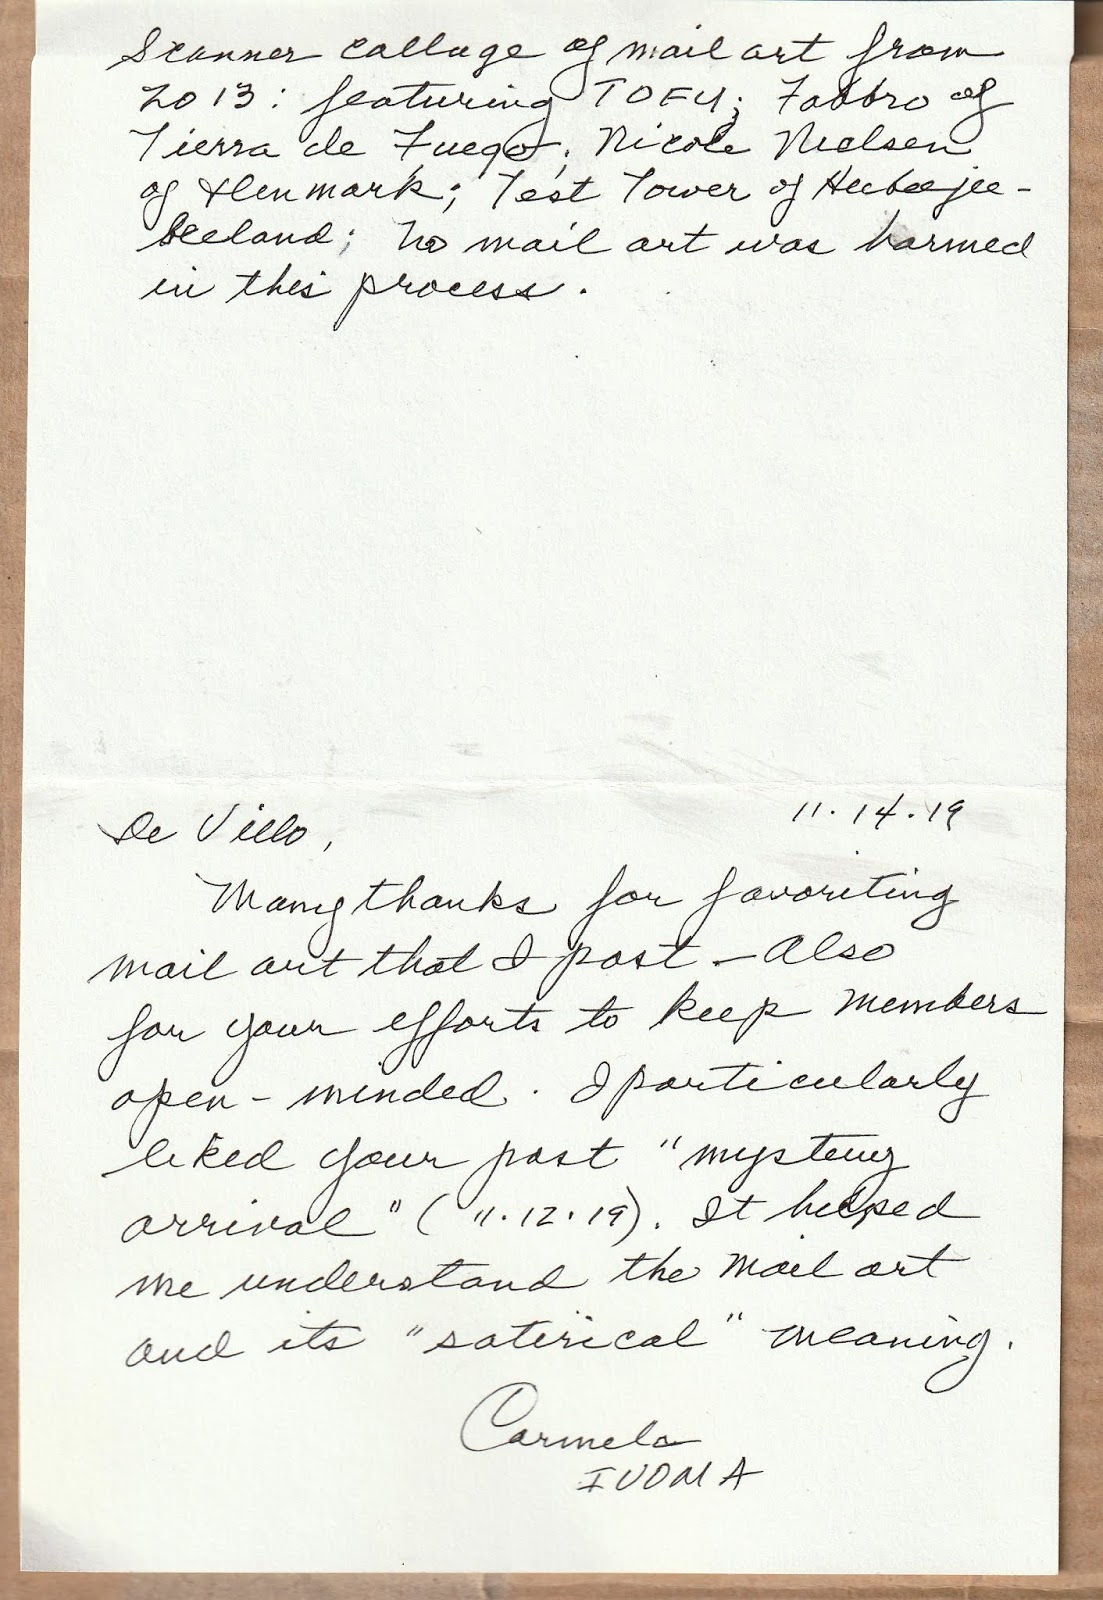 Scanner collage of mail art from
2013: featuring TOFU; Fabbro of
Tierra de Fuego; Nicole Nielsen
of Denmark; Test Tower of
; no mail art was harmed
in this process.
De Villo,
11.14.19
Many thanks for favoriting
mail art that I post – Also
for your efforts to keep members
open-minded. I particularly
liked your post "mystery
arrival" (11.12.19). It helped
me understand the mail art
and its "satirical" meaning.
Carmela
IUOMA